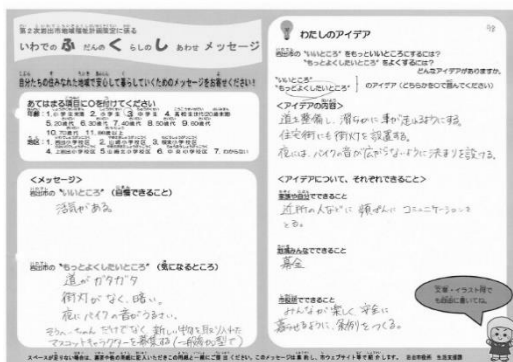 第2次岩出市地域福祉計画策定に係る
いわでの ふ だんの く らしの し あわせ メッセージ
自分たちの住みなれた地域で安心して暮らしていくためのメッセージをお寄せください!
あてはまる項目に○を付けてください
1.小学生未満 2.小学生 3.中学生 4.高校生世代20歳未満
5.20歳代 6.30歳代 7.40歳代 8.50歳代 9.60歳代
10.70歳代 11.80歳以上
地区:1.岩出小学校区 2.山崎小学校区 3.根来小学校区
4.上岩出小学校区 5.山崎北小学校区 6.中央小学校区 7.わからない
<メッセージ>
岩出市の "いいところ" (自慢できること)
活気がある。
岩出市の "もっとよくしたいところ" (気になるところ)
道がガタガタ
街灯がなく、暗い。
夜にバイクの音がうるさい。
マスコットキャラクターを募集する
わたしのアイデア
岩出市の "いいところ" をもっといいところにするには?
"もっとよくしたいところ" をよくするには?
どんなアイデアがありますか。
"いいところ"
"もっとよくしたいところ" のアイデア (どちらかを○で囲んでください)
<アイデアの内容>
道を整備し、滑らかに車が走るようにする。
住宅街にも街灯を設置する。
夜には、バイクの音が広がらないように決まりを設ける。
<アイデアについて、それぞれできること>
家族や自分でできること
近所の人などに 頻ぱんに コミュニケーションを
とる。
地域みんなでできること
募金
市役所でできること
みんなが楽しく、安全に
暮らせるように、条例をつくる。
文章・イラスト何でも自由に書いてね。
スペースが足りない場合は、裏面や他の用紙に記入いただきこの用紙と一緒にご提出ください。このメッセージは集約し、市ウェブサイト等で紹介します。 岩出市役所 生活支援課